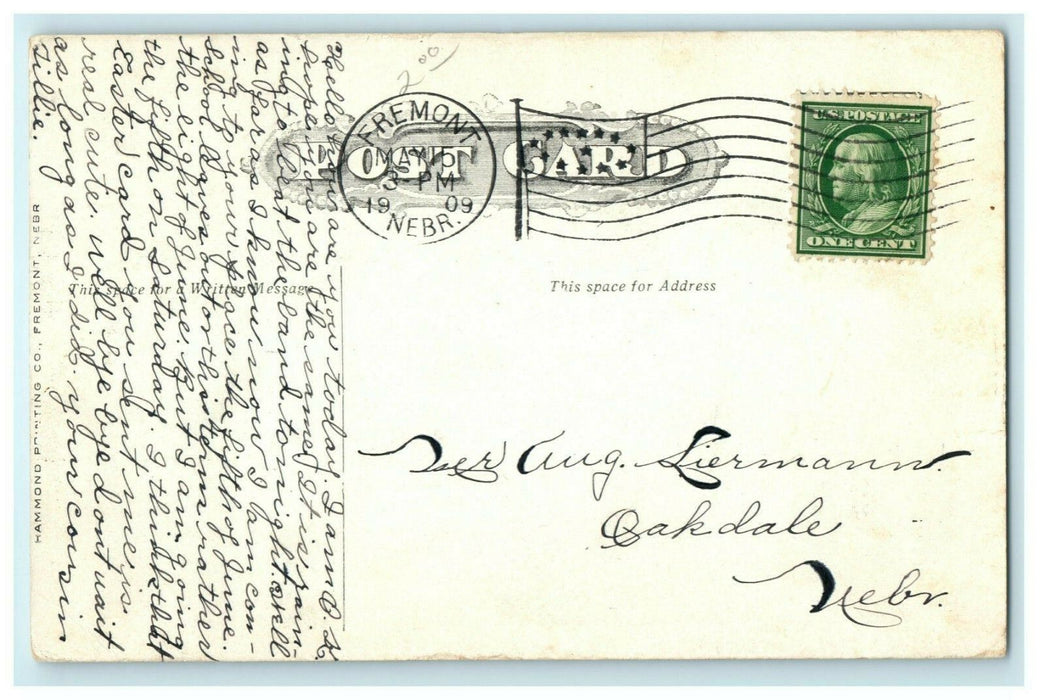 200
POST CARD
FREMONT,
MAY 15
3-PM
1909
NEBR.
U.S. POSTAGE
ONE CENT
This space for a Written Message
This space for Address
Mr Aug. Liermann.
Oakdale
Nebr.
Hello how are you today. I am O.K.
hope you are the same. It is rain-
ing to beat the band tonight as well
as far as I know now I am com-
ing to your place the fifth of June.
School leaves out on this term rather
the eight of June. But I am going
the fifth on Saturday. I think that
Easter card you sent me is
real cute. well bye bye dont wait
as long as I did. your cousin
Tillie.
HAMMOND PRINTING CO., FREMONT, NEBR